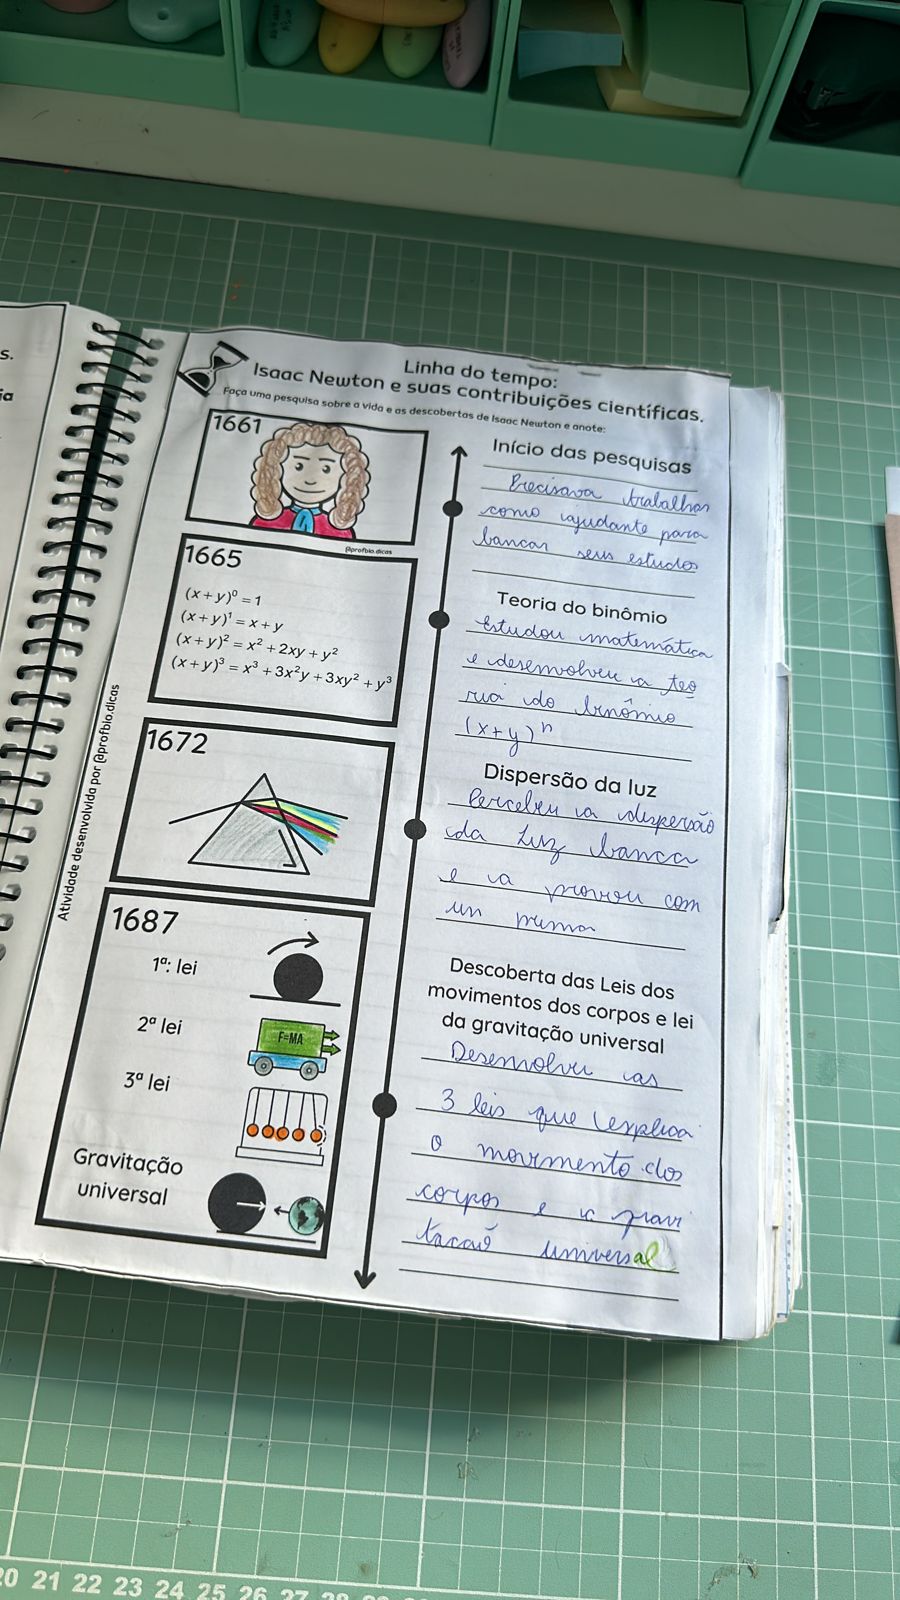 s.
ia
Linha do tempo:
Isaac Newton e suas contribuições científicas.
Faça uma pesquisa sobre a vida e as descobertas de Isaac Newton e anote:
1661
@profbio.dicas
Início das pesquisas
Precisava trabalhar
como ajudante para
bancar seus estudos
1665
(x+y)⁰ = 1
(x+y)¹ = x + y
(x+y)² = x² + 2xy + y²
(x+y)³ = x³ + 3x²y + 3xy² + y³
Teoria do binômio
Estudou matemática
e desenvolveu a teo
ria do binômio
(x+y)ⁿ
1672
Dispersão da luz
Percebeu a dispersão
da Luz banca
e a provou com
un prisma
1687
1ª: lei
2ª lei
F=MA
3ª lei
Gravitação
universal
Descoberta das Leis dos
movimentos dos corpos e lei
da gravitação universal
Desenvolveu as
3 leis que explica
o movimento dos
corpos e a gravi
tacaõ universal
Atividade desenvolvida por @profbio.dicas
20 21 22 23 24 25 26 27 28 29